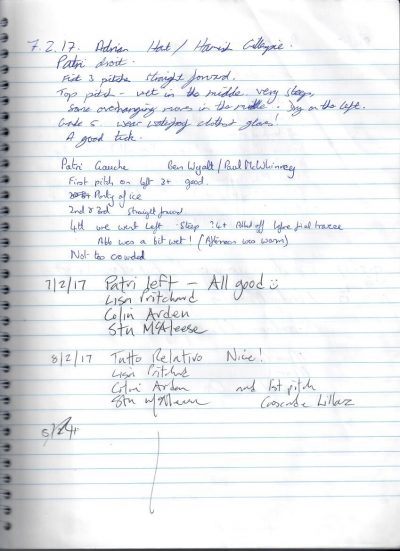 7.2.17. Adrian Hart / Hamish Gillespie.
Patri droit.
First 3 pitches straight forward.
Top pitch - wet in the middle very steep,
Some overhanging moves in the middle. Dry on the left.
Grade 5. wear waterproof clothes & gloves!
A good tick.
Patri Gauche Ben Wyatt / Paul McWhinney
First pitch on left 3+ good.
Plenty of ice
2nd & 3rd straight forward
4th we went left. Steep 4+ Abbed off before final
Abb was a bit wet! (Afternoon was warm)
Not too crowded
7/2/17 Patri left - All good ☺
Lisa Pritchard
Colin Arden
Stu McAleese
8/2/17 Tutto Relativo Nice!
Lisa Pritchard
Colin Arden and 1st pitch
Stu McAleese Cascade Lillaz